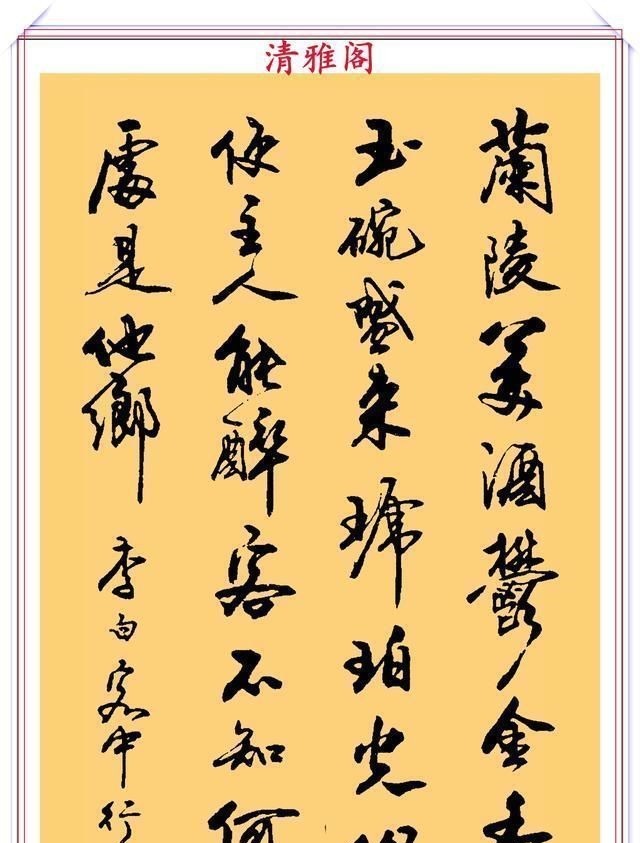 清雅阁
蘭陵美酒鬱金香
玉碗盛来琥珀光
使主人能醉客不知何
處是他鄉
李白客中行